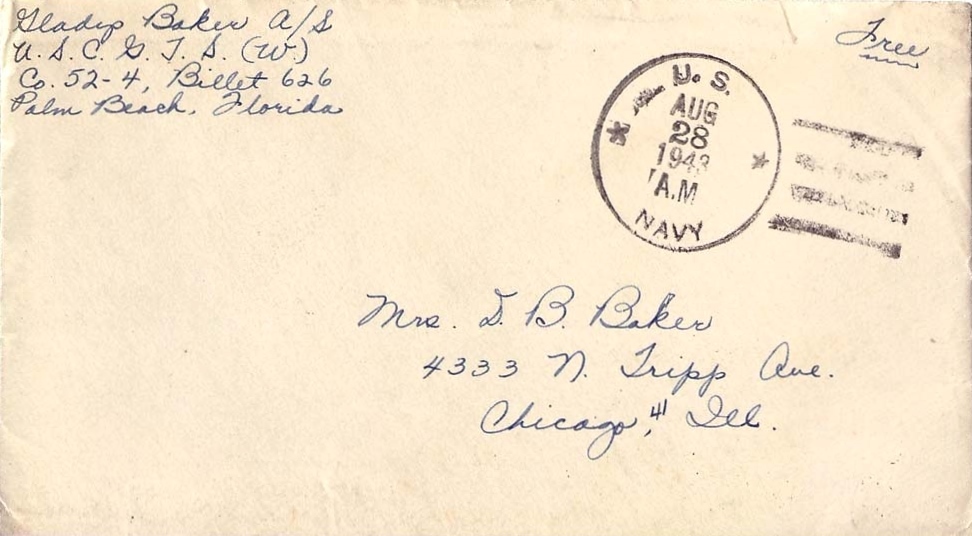 Gladys Baker A/S
U. S. C. G. T. S. (W.)
Co. 52-4, Billet 626
Palm Beach, Florida
Free
U. S.
AUG
28
1943
A.M
NAVY
Mrs. D. B. Baker
4333 N. Tripp Ave.
Chicago, 41 Ill.